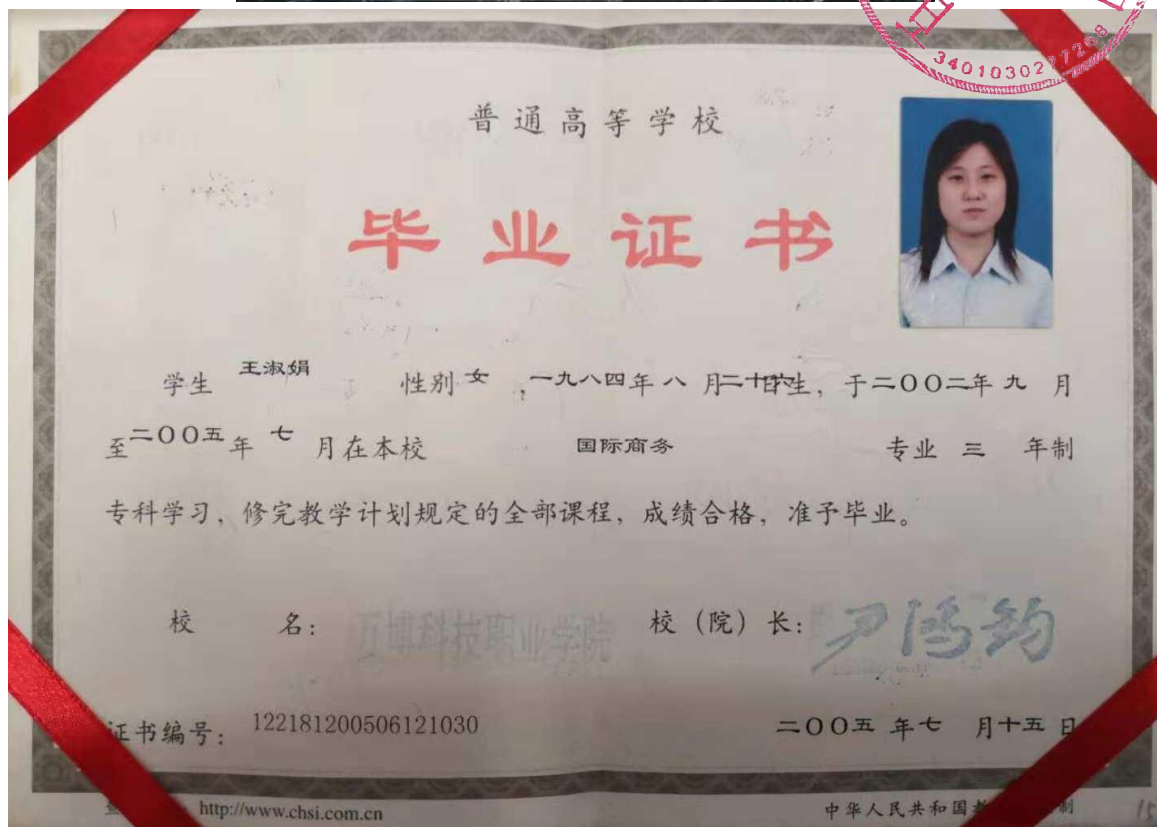 3401030277268
普通高等学校
毕业证书
学生 王淑娟 性别 女 ,一九八四年 八 月二十六日生, 于二〇〇二年 九 月
至二〇〇五 年 七 月在本校 国际商务 专业 三 年制
专科学习, 修完教学计划规定的全部课程, 成绩合格, 准予毕业。
校 名: 万博科技职业学院 校 (院) 长: 尹鸿钧
证书编号: 122181200506121030 二〇〇五 年 七 月十五日
http://www.chsi.com.cn 中华人民共和国教 制
15